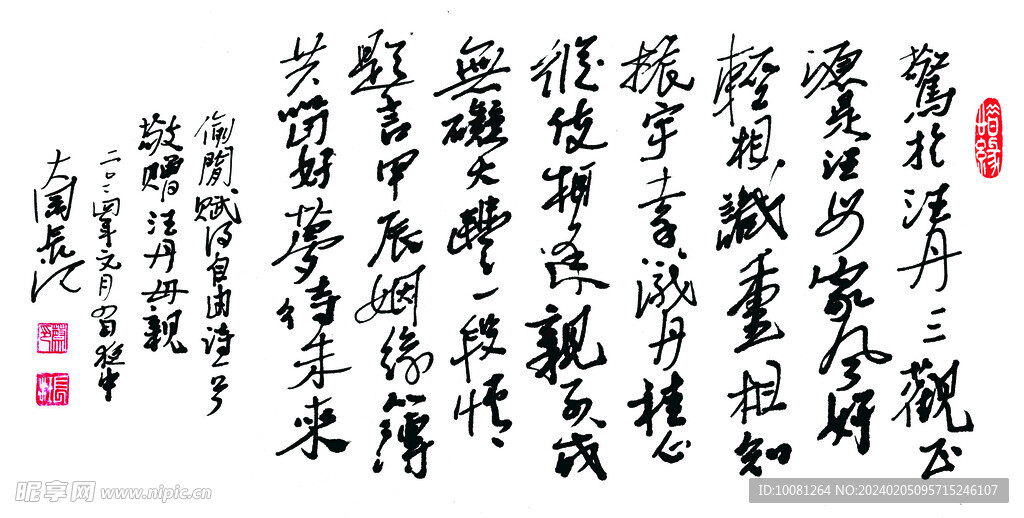 惜缘
驚於汪丹三觀正
源是汪母家風好
輕相識重相知
振宇幸識丹桂心
縱使相逢親不成
無礙大豐一段情
題言甲辰姻緣簿
共留好夢待未來
偷閒賦得自由詩一首
敬贈汪丹母親
二〇二四年元月
大園長江
昵享网 www.nipic.cn
ID:10081264 NO:20240205095715246107